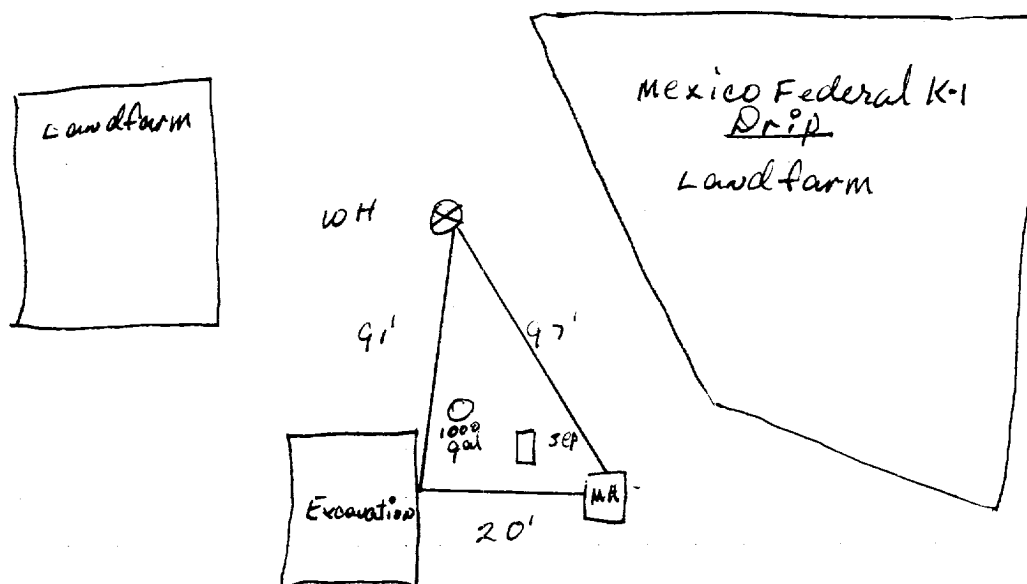 Landfarm
Mexico Federal K-1
Drip
Landfarm
WH
91'
97'
1000
gal
sep
Excavation
MH
20'